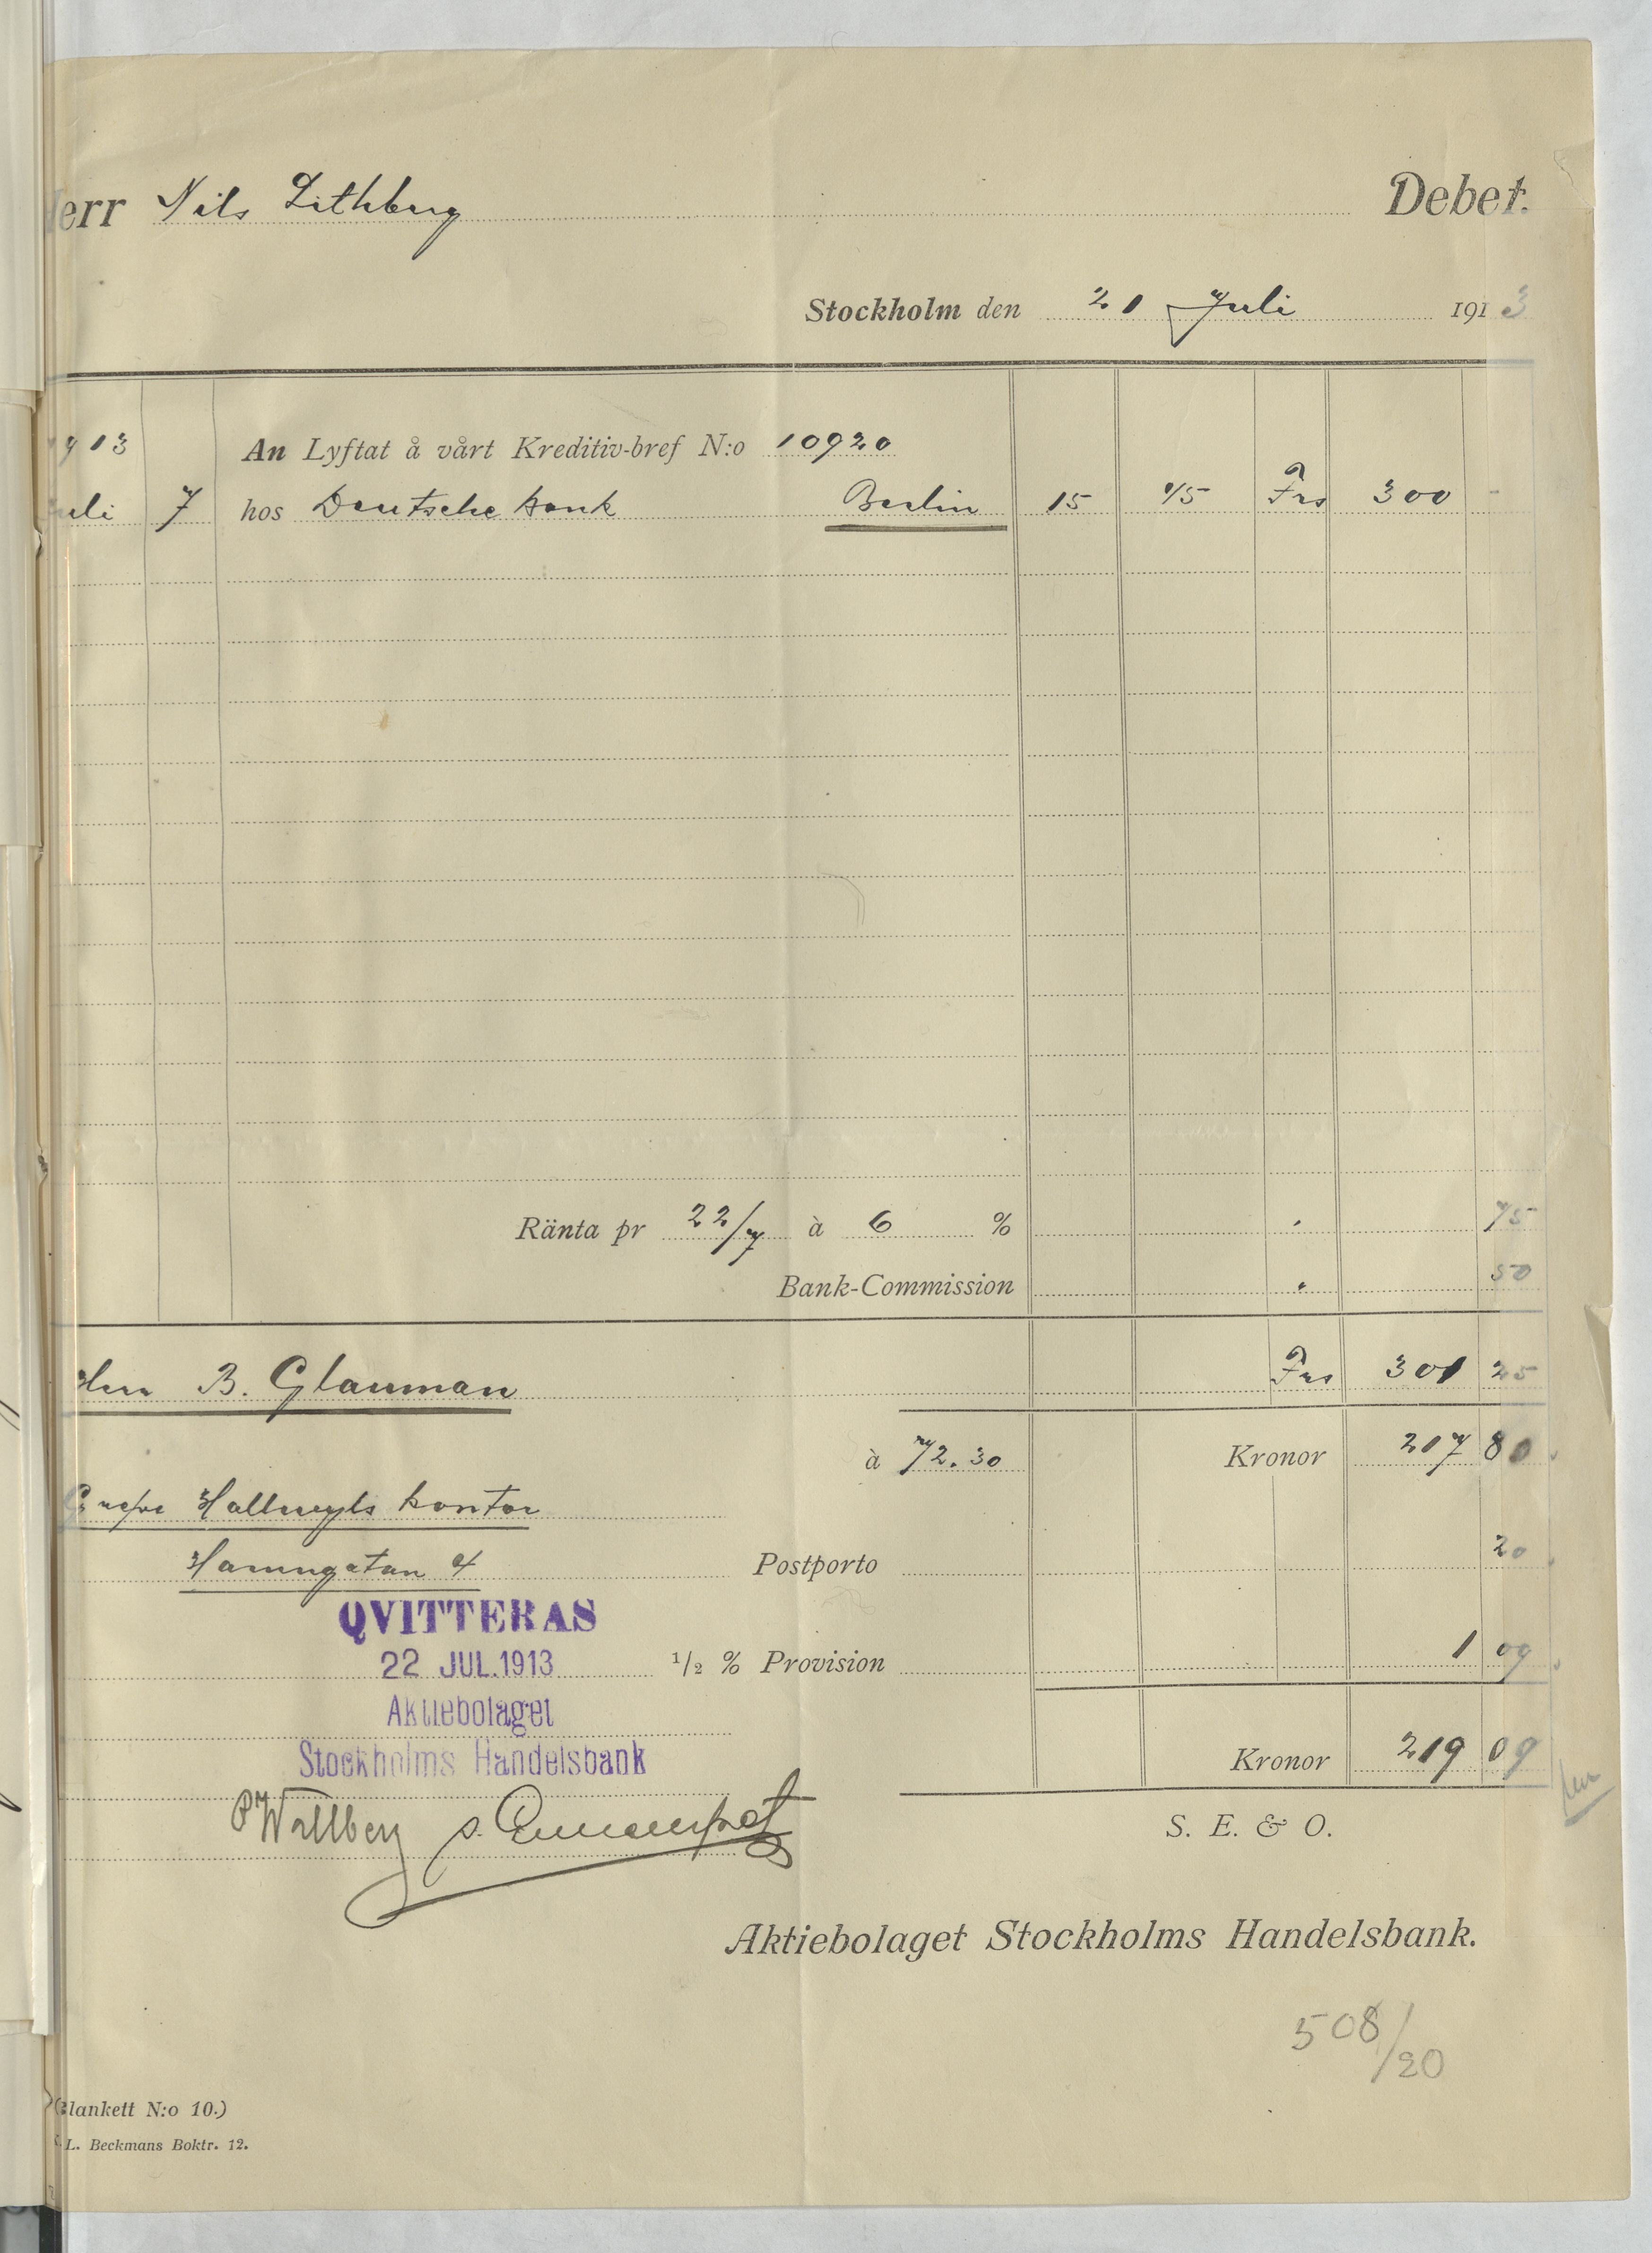 Herr Nils Lithberg Debet.
Stockholm den 21 Juli 1913
1913 An Lyftat å vårt Kreditiv-bref N:o 10920
Juli 7 hos Deutsche Bank Berlin 15 75 Frs 300 -
Ränta pr 22/7 à 6 % 75
Bank-Commission 50
Herr B. Glauman Frs 301 25
à 72.30 Kronor 217 80
Grefve Hallwyls kontor
Hamngatan 4 Postporto 20
QVITTERAS
22 JUL. 1913 1/2 % Provision 1 09
Aktiebolaget
Stockholms Handelsbank
Kronor 219 09
Wallberg
S. E. & O.
Aktiebolaget Stockholms Handelsbank.
508/20
(Blankett N:o 10.)
L. Beckmans Boktr. 12.